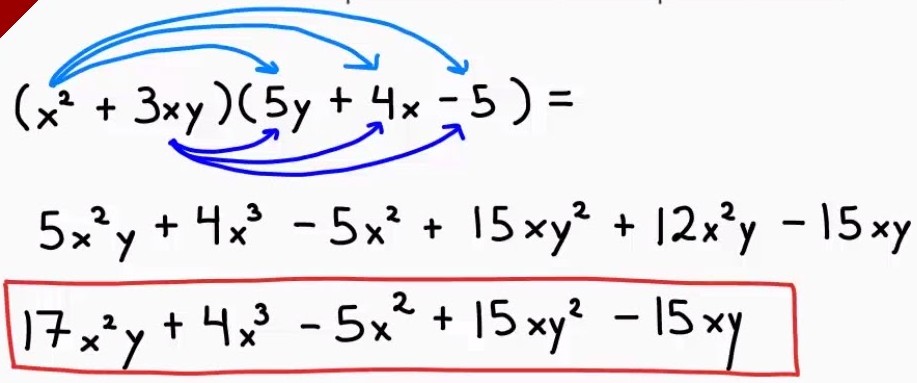 (x² + 3xy)(5y + 4x - 5) =
5x²y + 4x³ - 5x² + 15xy² + 12x²y - 15xy
17x²y + 4x³ - 5x² + 15xy² - 15xy